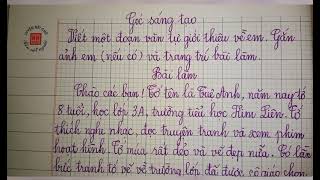 Góc sáng tạo
Viết một đoạn văn tự giới thiệu về em. Gắn
ảnh em (nếu có) và trang trí bài làm.
Bài làm
Chào các bạn! Tớ tên là Tuệ Anh, năm nay tớ
8 tuổi, học lớp 3A, trường tiểu học Kim Liên. Tớ
thích nghe nhạc, đọc truyện tranh và xem phim
hoạt hình. Tớ múa rất dẻo và vẽ đẹp nữa. Có lần
bức tranh tớ vẽ về trường lớp đã được cô giáo chọn